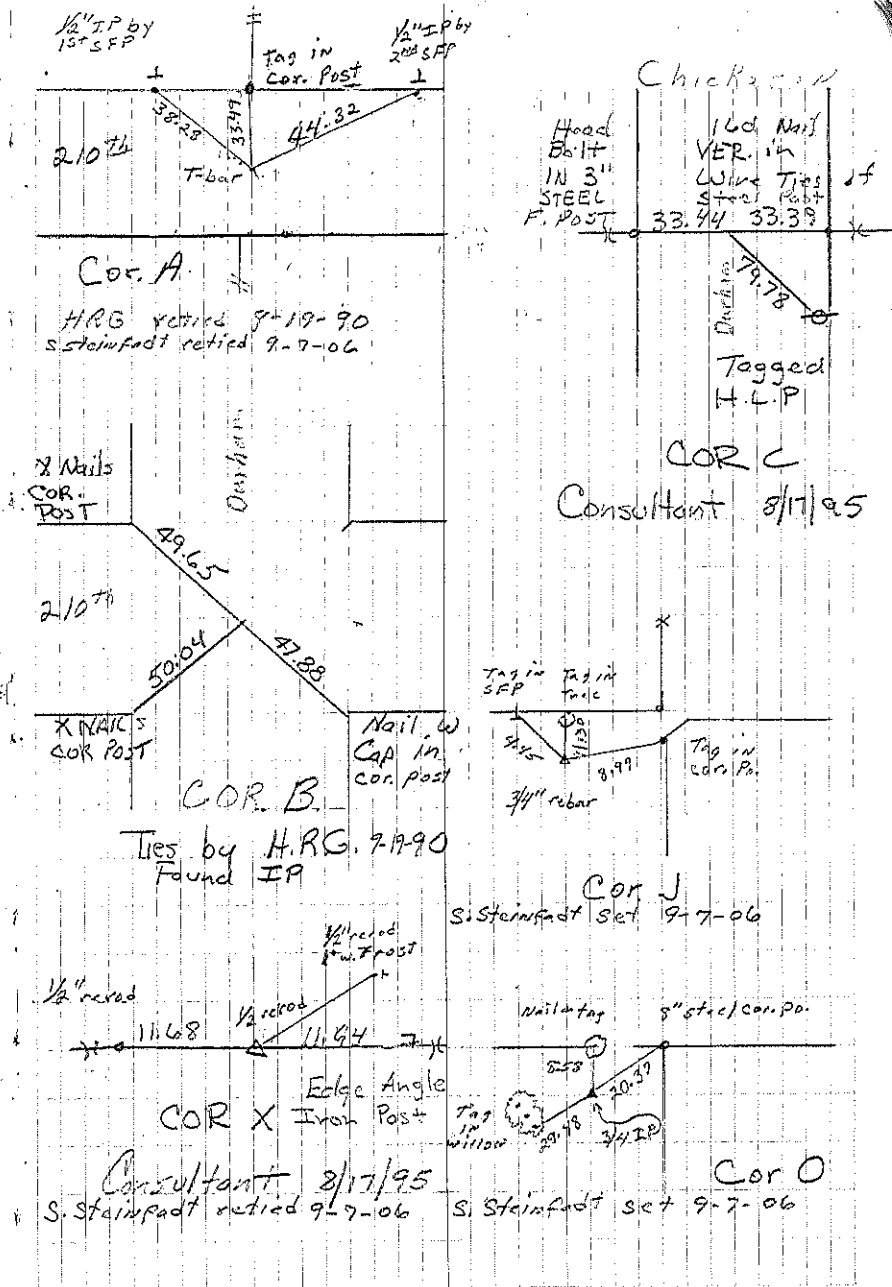 1/2" IP by
1st SFP
Tag in
Cor. Post
1/2" IP by
2nd SFP
38.28
33.49
44.32
210th
T-bar
Cor. A
HRG retied 9-19-90
S. Steinfadt retied 9-7-06
Head
Bolt
IN 3"
STEEL
F. POST
16d Nail
VER. in
Wire Ties of
Steel Post
33.44 33.39
Durham
79.78
Tagged
H.L.P
COR C
Consultant 8/17/95
X Nails
COR.
POST
Durham
49.65
210th
50.04
47.88
X NAILS
COR POST
Nail w
Cap in
cor. post
COR. B
Ties by H.R.G. 9-19-90
Found IP
Tag in
SFP
Tag in
Tree
8.99
3/4" rebar
Tag in
cor. Po.
Cor. J
S. Steinfadt Set 9-7-06
1/2" rerod
1st w. F Post
1/2" rerod
11.68
1/2 rerod
11.54
Edge Angle
Iron Post
COR X
Consultant 8/17/95
S. Steinfadt retied 9-7-06
Nail & tag
8" steel cor. po.
8.58
20.37
Tag
in
willow
29.48
3/4 IP
Cor O
S. Steinfadt set 9-7-06